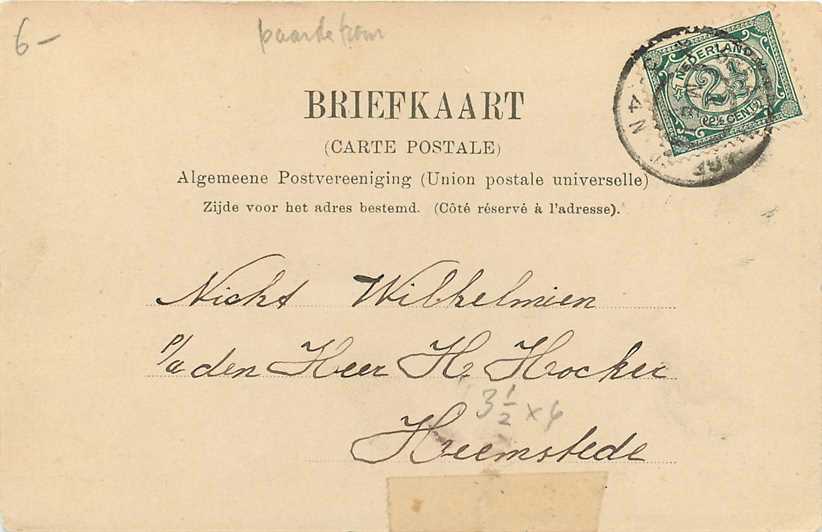 6-
paardetram
NEDERLAND
2½
2½ CENT
4 N
BRIEFKAART
(CARTE POSTALE)
Algemeene Postvereeniging (Union postale universelle)
Zijde voor het adres bestemd. (Côté réservé à l'adresse).
Nicht Wilhelmien
p/a den Heer H. Hocker
3½ x 6
Heemstede